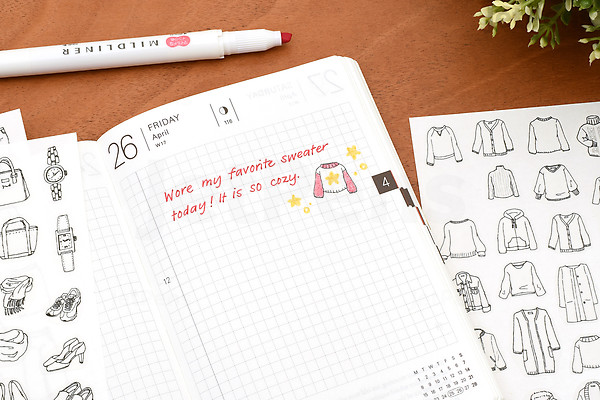 MILDLINER
26
FRIDAY
April
W17
Wore my favorite sweater
today! It is so cozy.
4
12
M T W T F S S